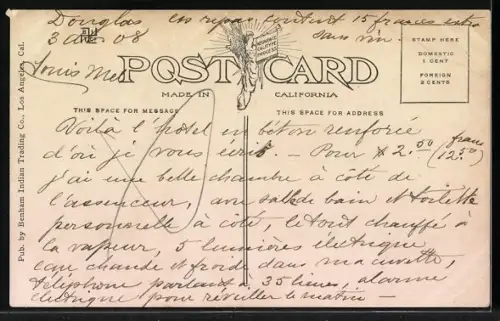 Douglas un repas coutant 15 francs est
3 08 sans vin.
Louis
POST CARD
MADE IN CALIFORNIA
STAMP HERE
DOMESTIC
1 CENT
FOREIGN
2 CENTS
THIS SPACE FOR MESSAGE
THIS SPACE FOR ADDRESS
Pub. by Benham Indian Trading Co., Los Angeles, Cal.
Voilà l'hotel en béton renforcé
d'où je vous écris. – Pour $2.50 (12.50 francs)
j'ai une belle chambre à côté de
l'ascenceur, avec salle de bain et toilette
personnelle à côté, le tout chauffé à
la vapeur, 5 lumières électrique
eau chaude et froide dans ma cuvette,
téléphone partant à 35 lieues, alarme
électrique pour réveiller le matin –